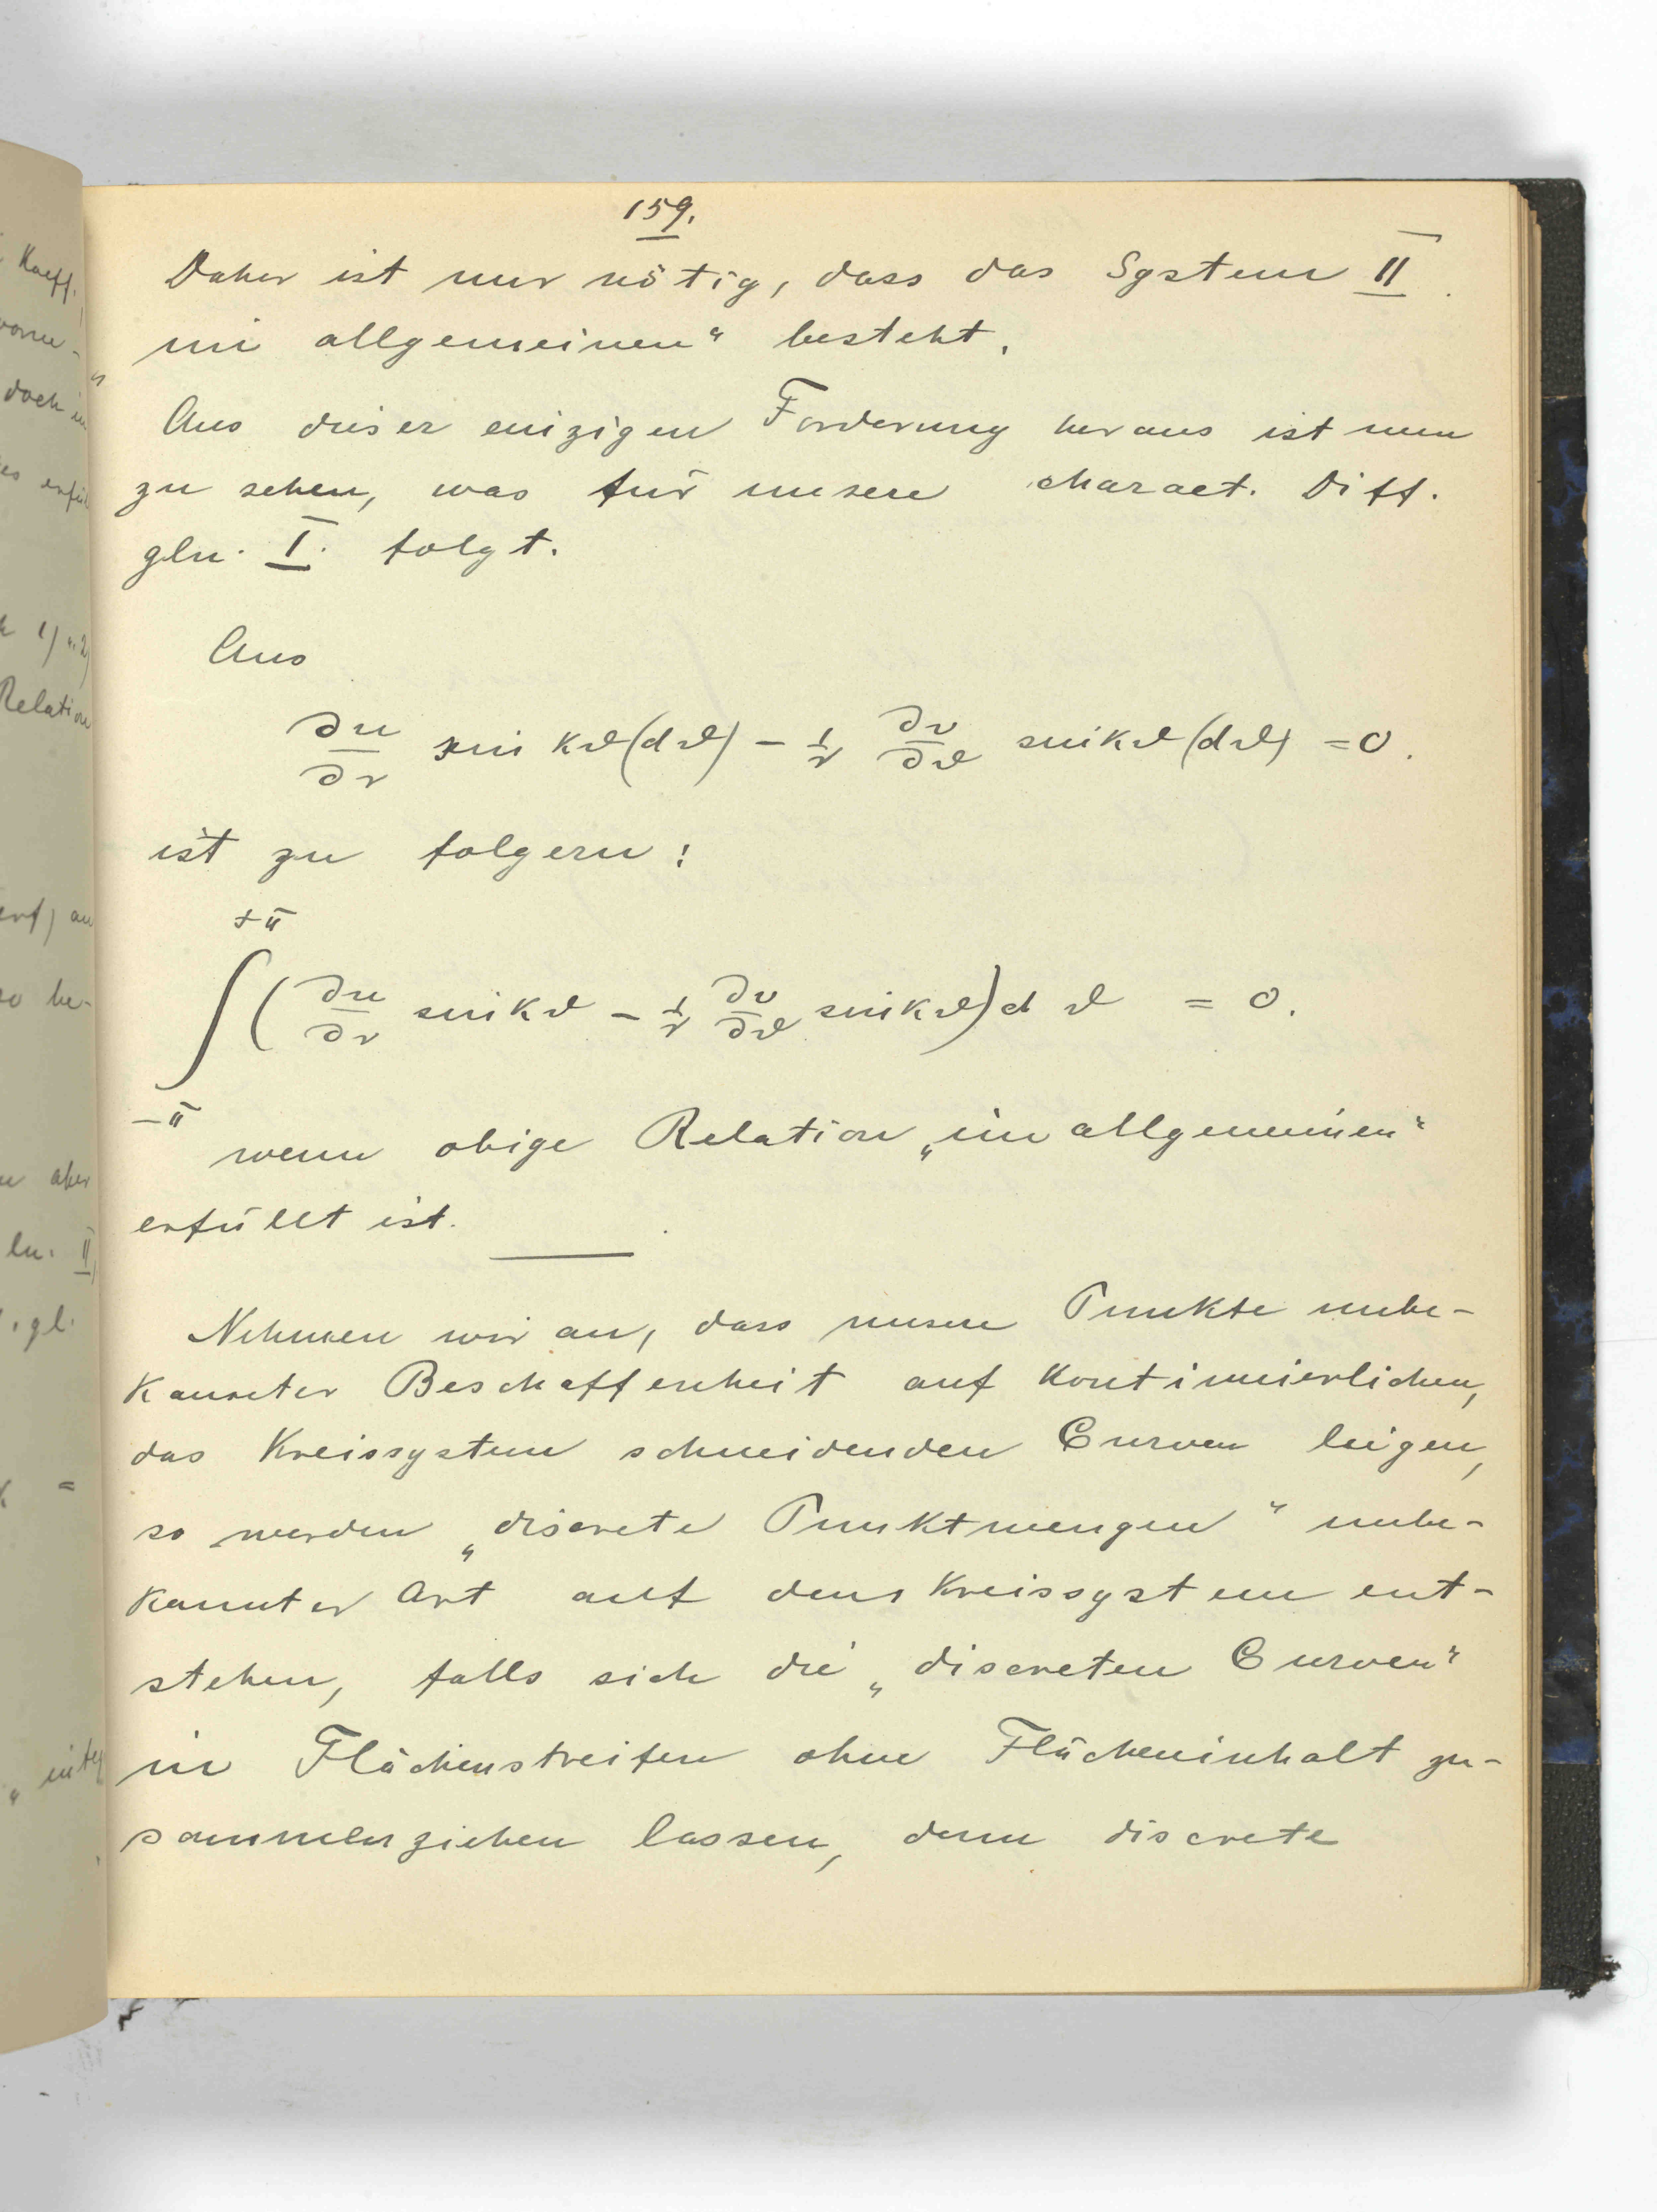 159.
Daher ist nur nötig, dass das System II
„im allgemeinen“ besteht.
Aus dieser einzigen Forderung heraus ist nun
zu sehen, was für unsere charact. Diff.
gln. I. folgt.
Aus
∂u/∂r sin kϑ(dϑ) – 1/r ∂v/∂ϑ sin kϑ(dϑ) = 0.
ist zu folgern:
∫_{-π}^{+π} (∂u/∂r sin kϑ – 1/r ∂v/∂ϑ sin kϑ) d ϑ = 0.
wenn obige Relation „im allgemeinen“
erfüllt ist.
Nehmen wir an, dass unsere Punkte unbe-
kannter Beschaffenheit auf kontinuierlichen,
das Kreissystem schneidenden Curven liegen,
so werden „discrete Punktmengen“ unbe-
kannter Art auf dem Kreissystem ent-
stehen, falls sich die „discreten Curven“
in Flächenstreifen ohne Flächeninhalt zu-
sammenziehen lassen, denn discrete
Koeff.
doch in
es erfül
1) u. 2)
Relation
so be-
aber
ln. II
gl.
=